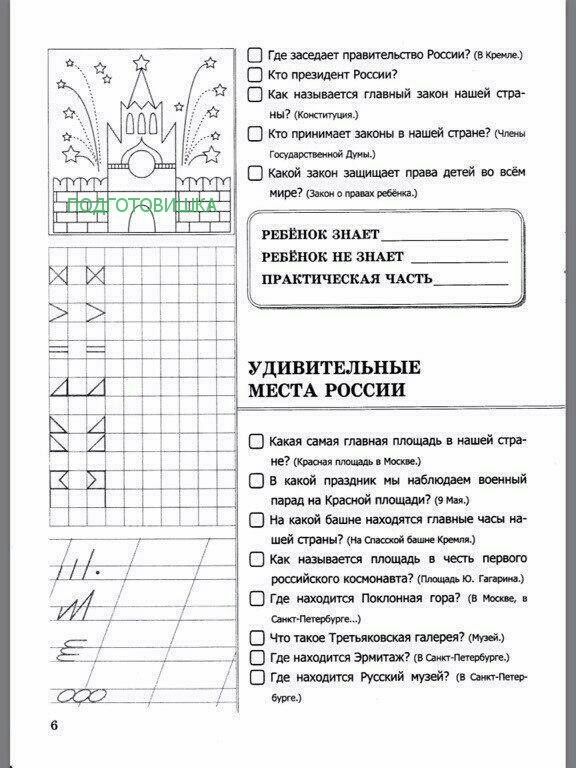 ПОДГОТОВИШКА
Где заседает правительство России? (В Кремле.)
Кто президент России?
Как называется главный закон нашей стра-
ны? (Конституция.)
Кто принимает законы в нашей стране? (Члены
Государственной Думы.)
Какой закон защищает права детей во всём
мире? (Закон о правах ребёнка.)
РЕБЁНОК ЗНАЕТ
РЕБЁНОК НЕ ЗНАЕТ
ПРАКТИЧЕСКАЯ ЧАСТЬ
УДИВИТЕЛЬНЫЕ
МЕСТА РОССИИ
Какая самая главная площадь в нашей стра-
не? (Красная площадь в Москве.)
В какой праздник мы наблюдаем военный
парад на Красной площади? (9 Мая.)
На какой башне находятся главные часы на-
шей страны? (На Спасской башне Кремля.)
Как называется площадь в честь первого
российского космонавта? (Площадь Ю. Гагарина.)
Где находится Поклонная гора? (В Москве, в
Санкт-Петербурге...)
Что такое Третьяковская галерея? (Музей.)
Где находится Эрмитаж? (В Санкт-Петербурге.)
Где находится Русский музей? (В Санкт-Петер-
бурге.)
6